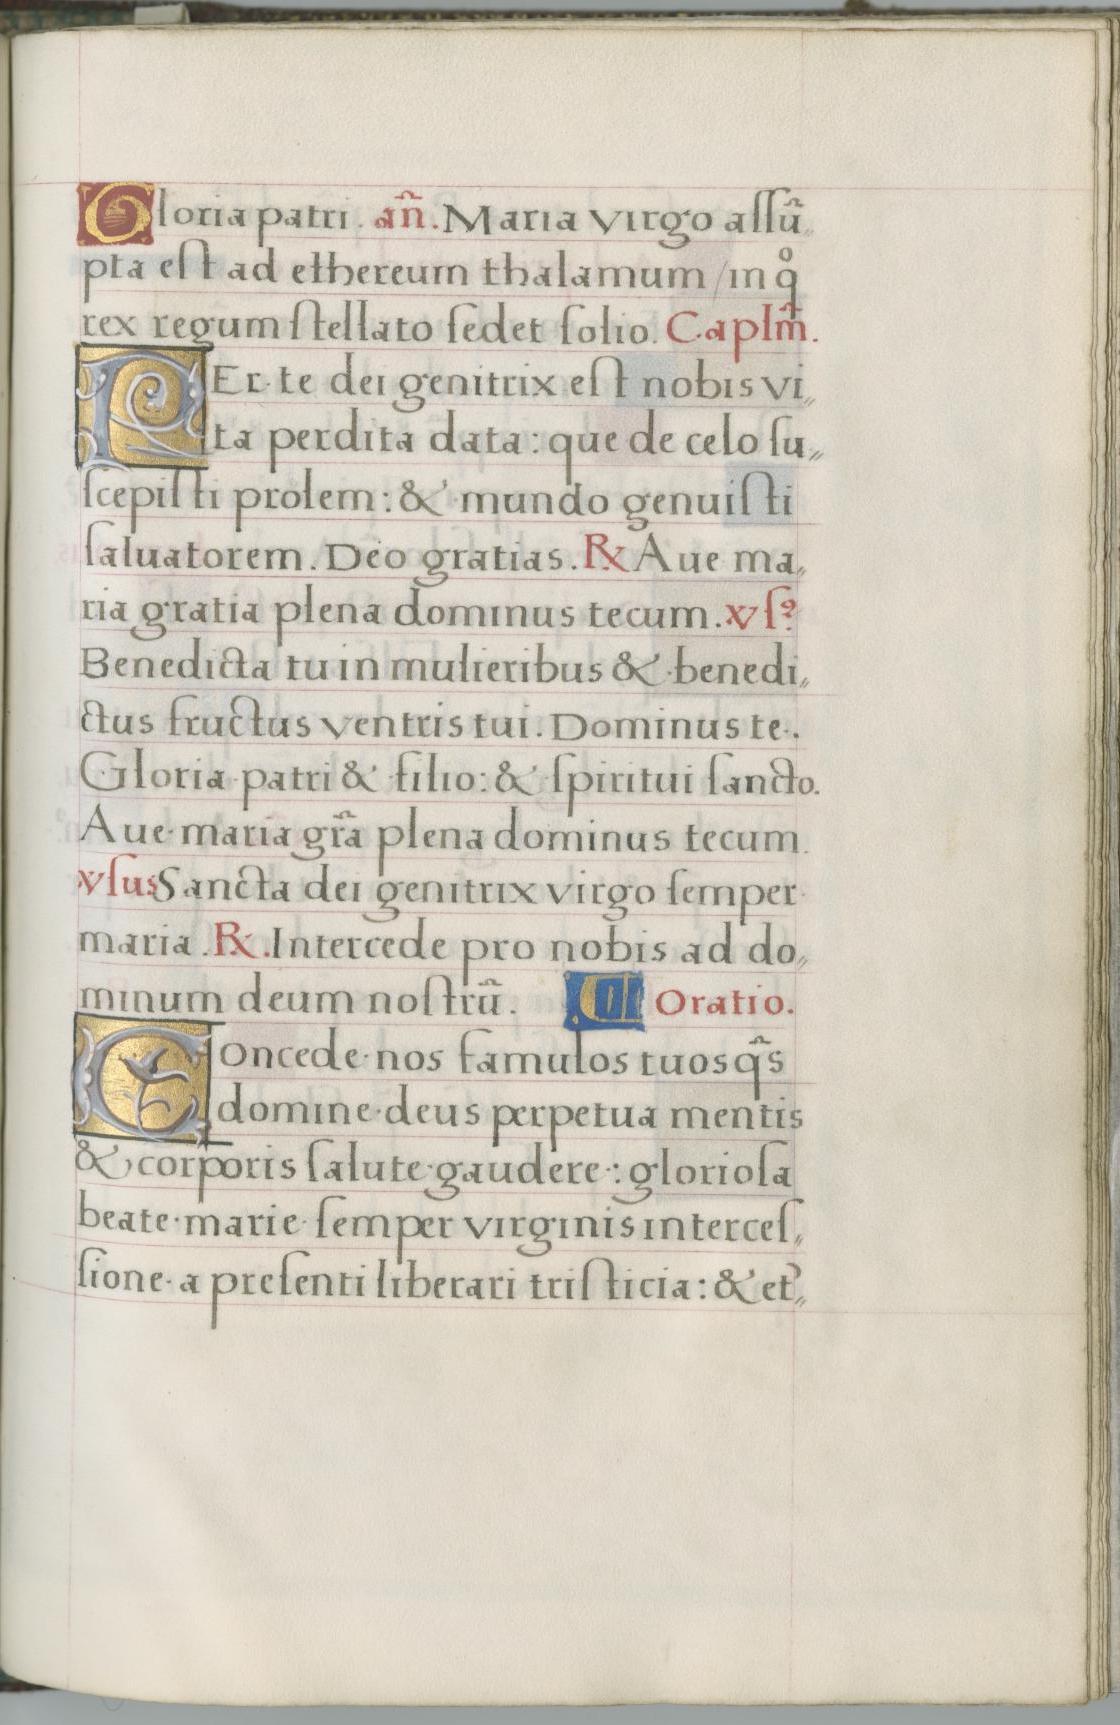 Gloria patri. añ. Maria virgo assũ„
pta est ad ethereum thalamum / in qͦ
rex regum stellato sedet solio. Caplm̃.
PEr te dei genitrix est nobis vi„
ta perdita data: que de celo su„
scepisti prolem: & mundo genuisti
saluatorem. Deo gratias. ℞ Aue ma„
ria gratia plena dominus tecum. vsꝰ
Benedicta tu in mulieribus & benedi„
ctus fructus ventris tui. Dominus te.
Gloria patri & filio: & spiritui sancto.
Aue maria gr̃a plena dominus tecum.
vsus Sancta dei genitrix virgo semper
maria. ℞. Intercede pro nobis ad do„
minum deum nostrũ. Oratio.
Concede nos famulos tuos q̃s
domine deus perpetua mentis
& corporis salute gaudere: gloriosa
beate marie semper virginis interces„
sione a presenti liberari tristicia: & et̉„